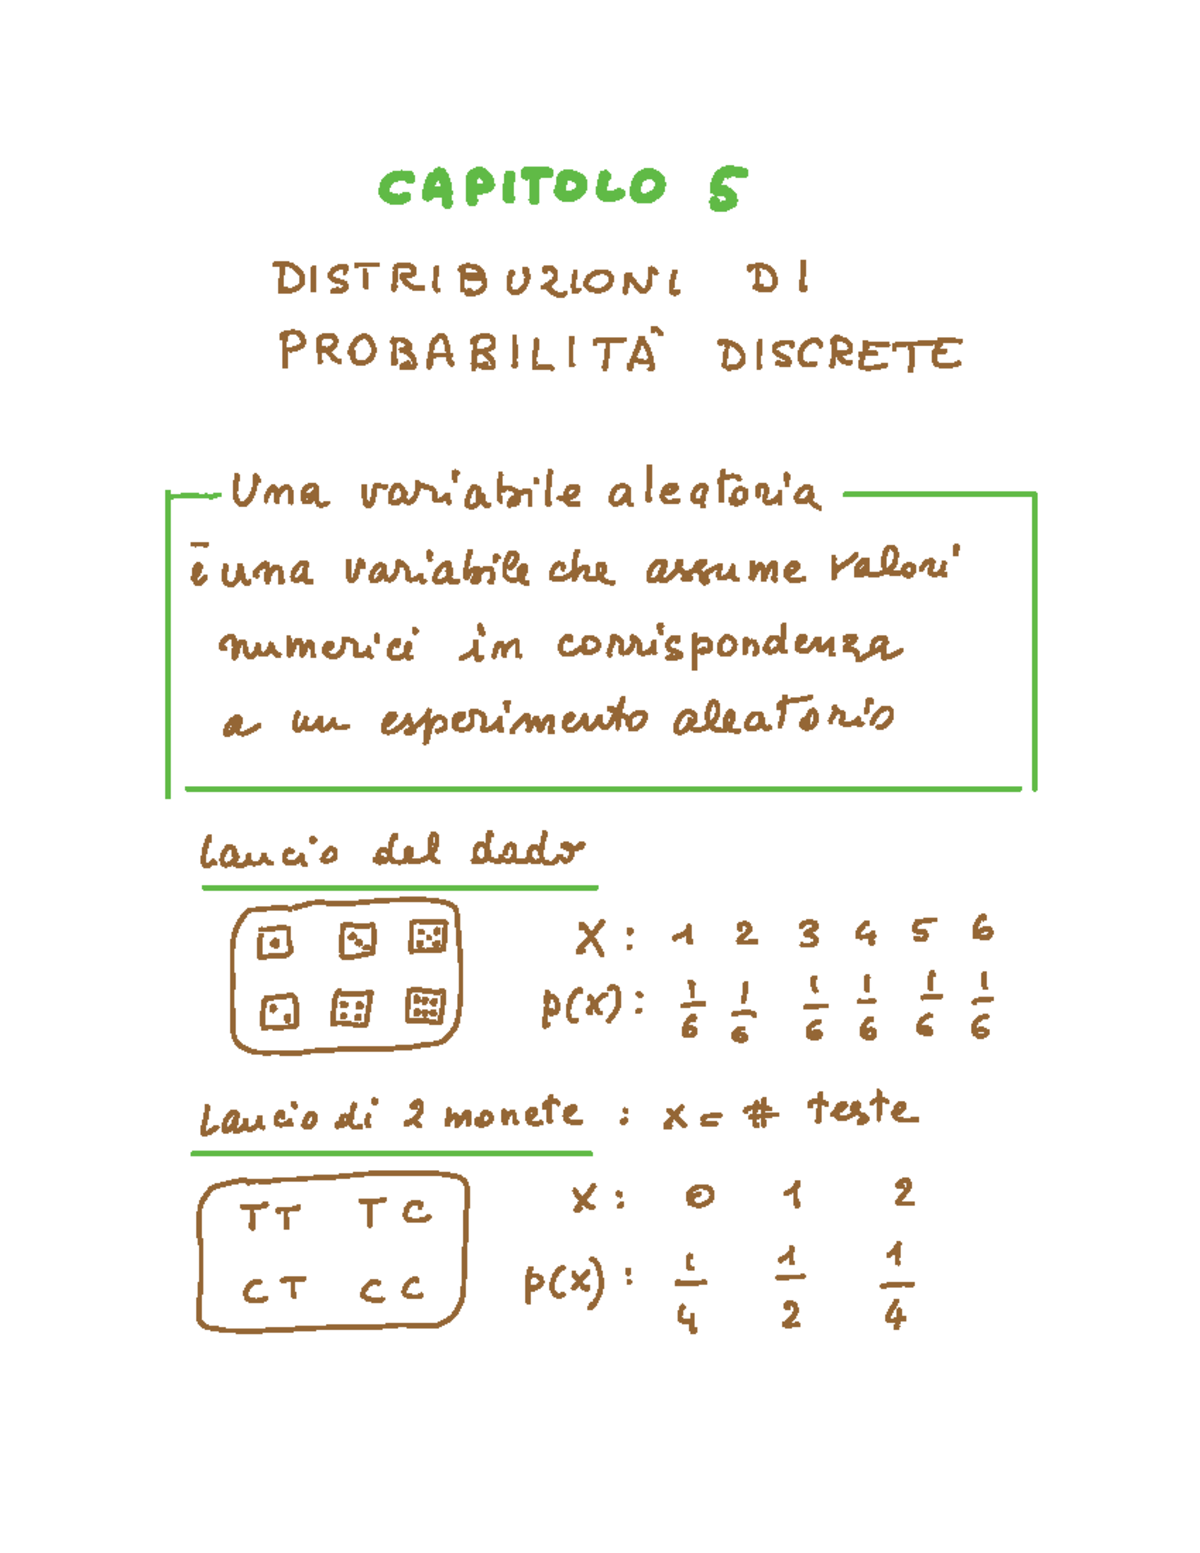 CAPITOLO 5
DISTRIBUZIONI DI
PROBABILITÀ DISCRETE
Una variabile aleatoria
è una variabile che assume valori
numerici in corrispondenza
a un esperimento aleatorio
Lancio del dado
X: 1 2 3 4 5 6
p(x): 1/6 1/6 1/6 1/6 1/6 1/6
Lancio di 2 monete : x = # teste
TT TC
CT CC
X: 0 1 2
p(x): 1/4 1/2 1/4